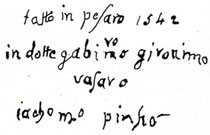 fatto in pesaro 1542
in dotte gabi mro gironimo
vasaro
iachomo pinsor